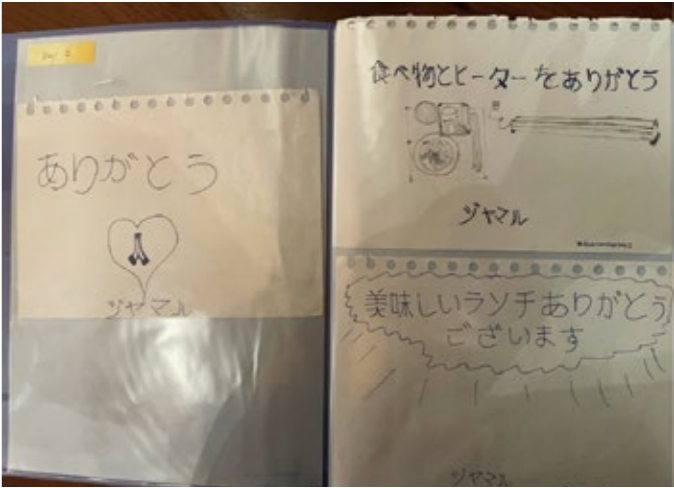 Day 2
ありがとう
ジャマル
食べ物とヒーターをありがとう
ジャマル
美味しいラソチありがとう
ございます
ジャマル